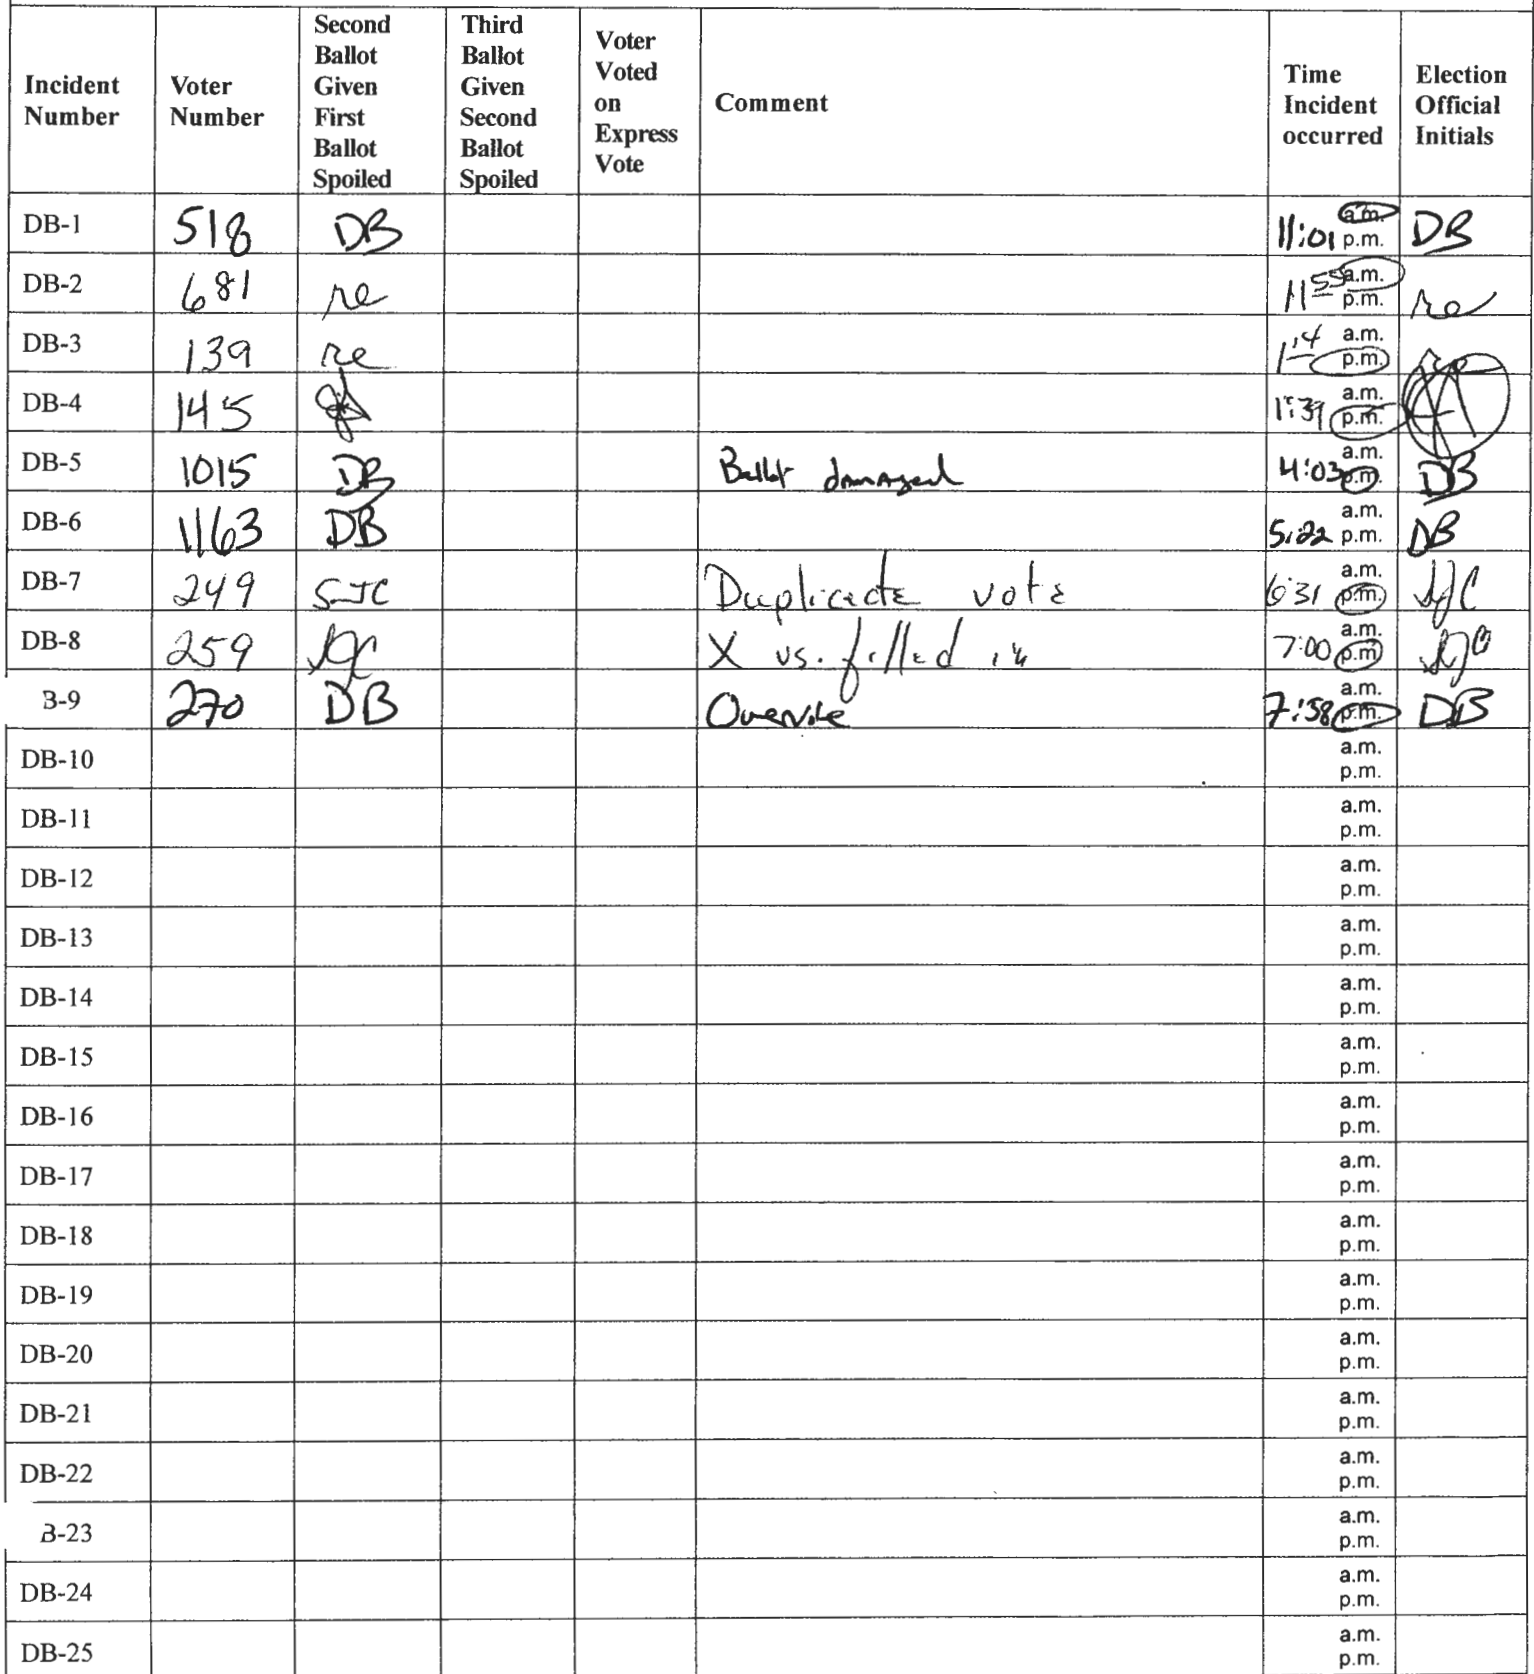 Incident Number | Voter Number | Second Ballot Given First Ballot Spoiled | Third Ballot Given Second Ballot Spoiled | Voter Voted on Express Vote | Comment | Time Incident occurred | Election Official Initials
DB-1 518 DB 11:01 a.m. p.m. DB
DB-2 681 re 11 55 a.m. p.m. re
DB-3 139 re 1 14 a.m. p.m. re
DB-4 145 1:39 a.m. p.m.
DB-5 1015 DB Ballot damaged 4:03 a.m. p.m. DB
DB-6 1163 DB 5:22 a.m. p.m. DB
DB-7 249 SJC Duplicate vote 6:31 a.m. p.m. SJC
DB-8 259 SJC X vs. filled in 7:00 a.m. p.m. SJC
B-9 270 DB Overvote 7:58 a.m. p.m. DB
DB-10 a.m. p.m.
DB-11 a.m. p.m.
DB-12 a.m. p.m.
DB-13 a.m. p.m.
DB-14 a.m. p.m.
DB-15 a.m. p.m.
DB-16 a.m. p.m.
DB-17 a.m. p.m.
DB-18 a.m. p.m.
DB-19 a.m. p.m.
DB-20 a.m. p.m.
DB-21 a.m. p.m.
DB-22 a.m. p.m.
B-23 a.m. p.m.
DB-24 a.m. p.m.
DB-25 a.m. p.m.